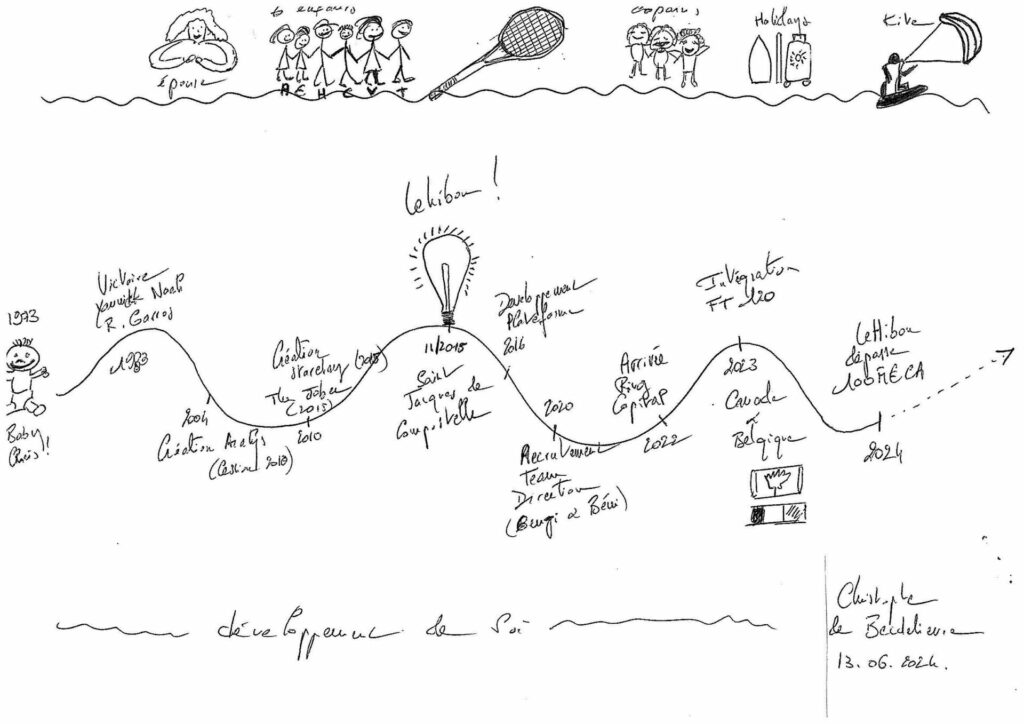 épouse
6 enfants
A E H E V T
copains
Holidays
Kite
Lehibou !
1973
Baby
Chris !!
Victoire
Yannick Noah
R. Garros
1983
2004
Création
(Cession 2018)
Création
The Jober
(2015)
2010
11/2015
Saint
Jacques de
Compostelle
Développement
Plateforme
2016
2020
Recrutement
Team
Direction
Arrivée
Ring
Capital
2022
Intégration
FT 120
2023
Canada
&
Belgique
LeHibou
dépasse
100M€ CA
2024
développement de Soi
Christophe
de
13.06.2024.